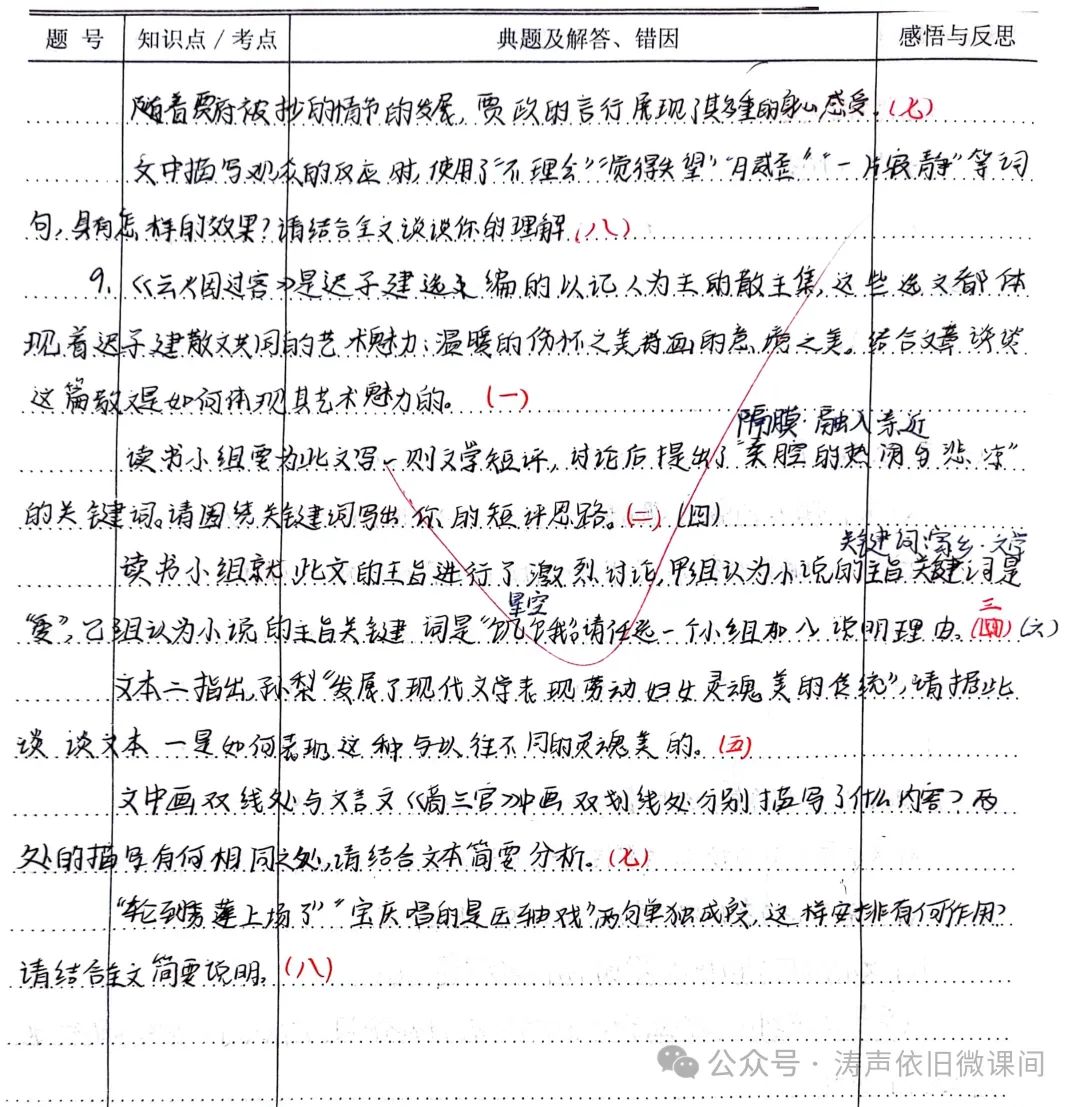 题 号 知识点/考点 典题及解答、错因 感悟与反思
随着贾府被抄的情节的发展,贾政的言行展现了其多重的身心感受。(七)
文中描写观众的反应时,使用了“不理会”“觉得失望”“一片寂静”等词
句,具有怎样的效果?请结合全文谈谈你的理解(八)
9.《云烟过客》是迟子建选主编的以记人为主的散文集,这些选文都体
现着迟子建散文共同的艺术魅力:温暖的伤怀之美 诗画的意境之美。结合文章谈谈
这篇散文是如何体现其艺术魅力的。(一)
隔膜·融入亲近
读书小组要为此文写一则文学短评,讨论后提出了“秦腔的热闹与悲凉”
的关键词。请围绕关键词写出你的短评思路。(二)(四)
关键词:家乡·文学
读书小组就此文的主旨进行了激烈讨论,甲组认为小说的主旨关键词是
星空
“爱”,乙组认为小说的主旨关键词是“饥饿”,请任选一个小组加入,说明理由。三(四)(六)
文本二指出,孙犁“发展了现代文学表现劳动妇女灵魂美的传统”,请据此
谈谈文本一是如何表现这种与以往不同的灵魂美的。(五)
文中画双线处与文言文《商三官》中画双划线处分别描写了什么内容?两
处的描写有何相同之处,请结合文本简要分析。(七)
“轮到秀莲上场了”“宝庆唱的是压轴戏”两句单独成段,这样安排有何作用?
请结合全文简要说明。(八)
公众号·涛声依旧微课间